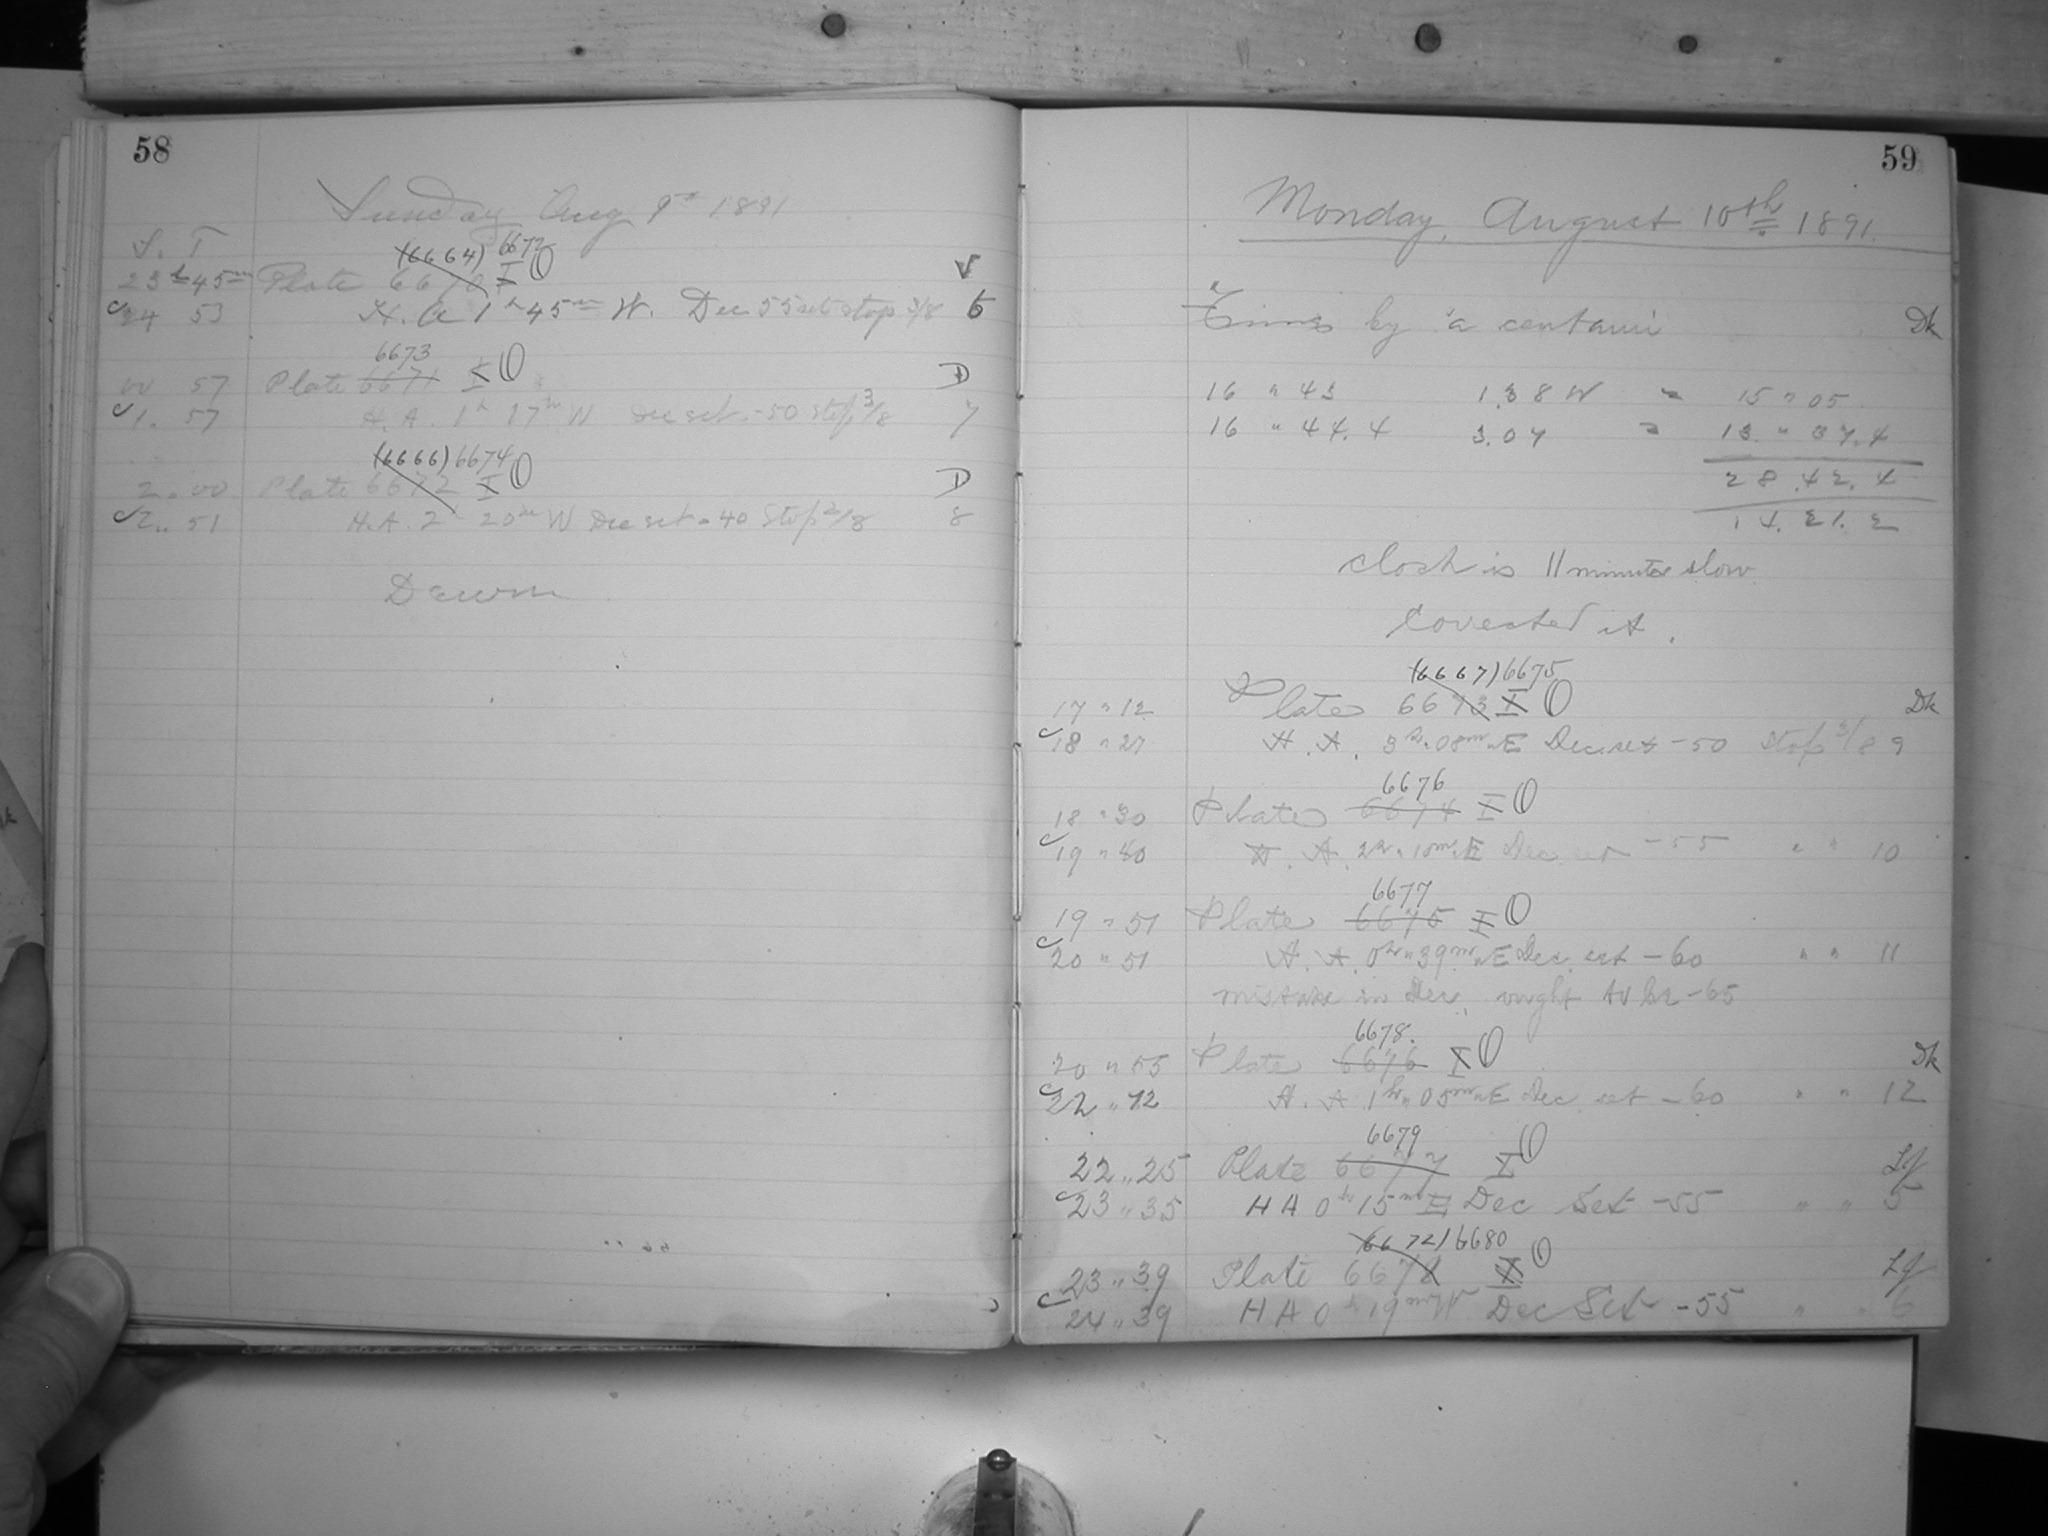 58
Sunday Aug 9th 1891
S. T
(6664) 6672
23h 45m Plate 6670 I O
24 53 H. A 1h 45m W. Dec 55 set stop 3/8 6
6673
00 57 Plate 6671 I O D
1. 57 H. A. 1h 17m W Dec set -50 Stop 3/8 7
(6666) 6674
2.00 Plate 6672 I O D
2.. 51 H.A. 2h 20m W Dec set -40 Stop 2/8 8
Dawn
59
Monday, August 10th 1891.
Times by "a centauri Dk
16 " 43 1.38 W = 15 " 05
16 " 44.4 3.07 = 13 " 37.4
28.42.4
14.21.2
Clock is 11 minutes slow
Corrected it.
(6667) 6675
17 " 12 Plate 6673 I O Dk
18 " 27 H. A. 3h.08m E Dec. set -50 Stop 3/8 9
6676
18 " 30 Plate 6674 I O
H. A. 2h " 10m E Dec. set -55 " " 10
6677
19 " 51 Plate 6675 I O
20 " 51 H. A. 0h " 39m E Dec. set -60 " " 11
mistake in Dec. ought to be -65
6678.
20 " 55 Plate 6676 I O Dk
22 " 12 H. A 1h " 05m E Dec. set -60 " " 12
6679
22 " 25 Plate 6677 I O Lf
23 " 35 H A 0h 15m E Dec Set -55 " " 5
(6672) 6680
23 " 39 Plate 6678 I O Lf
24 " 39 H A 0h 19m W Dec Set -55 " " 6